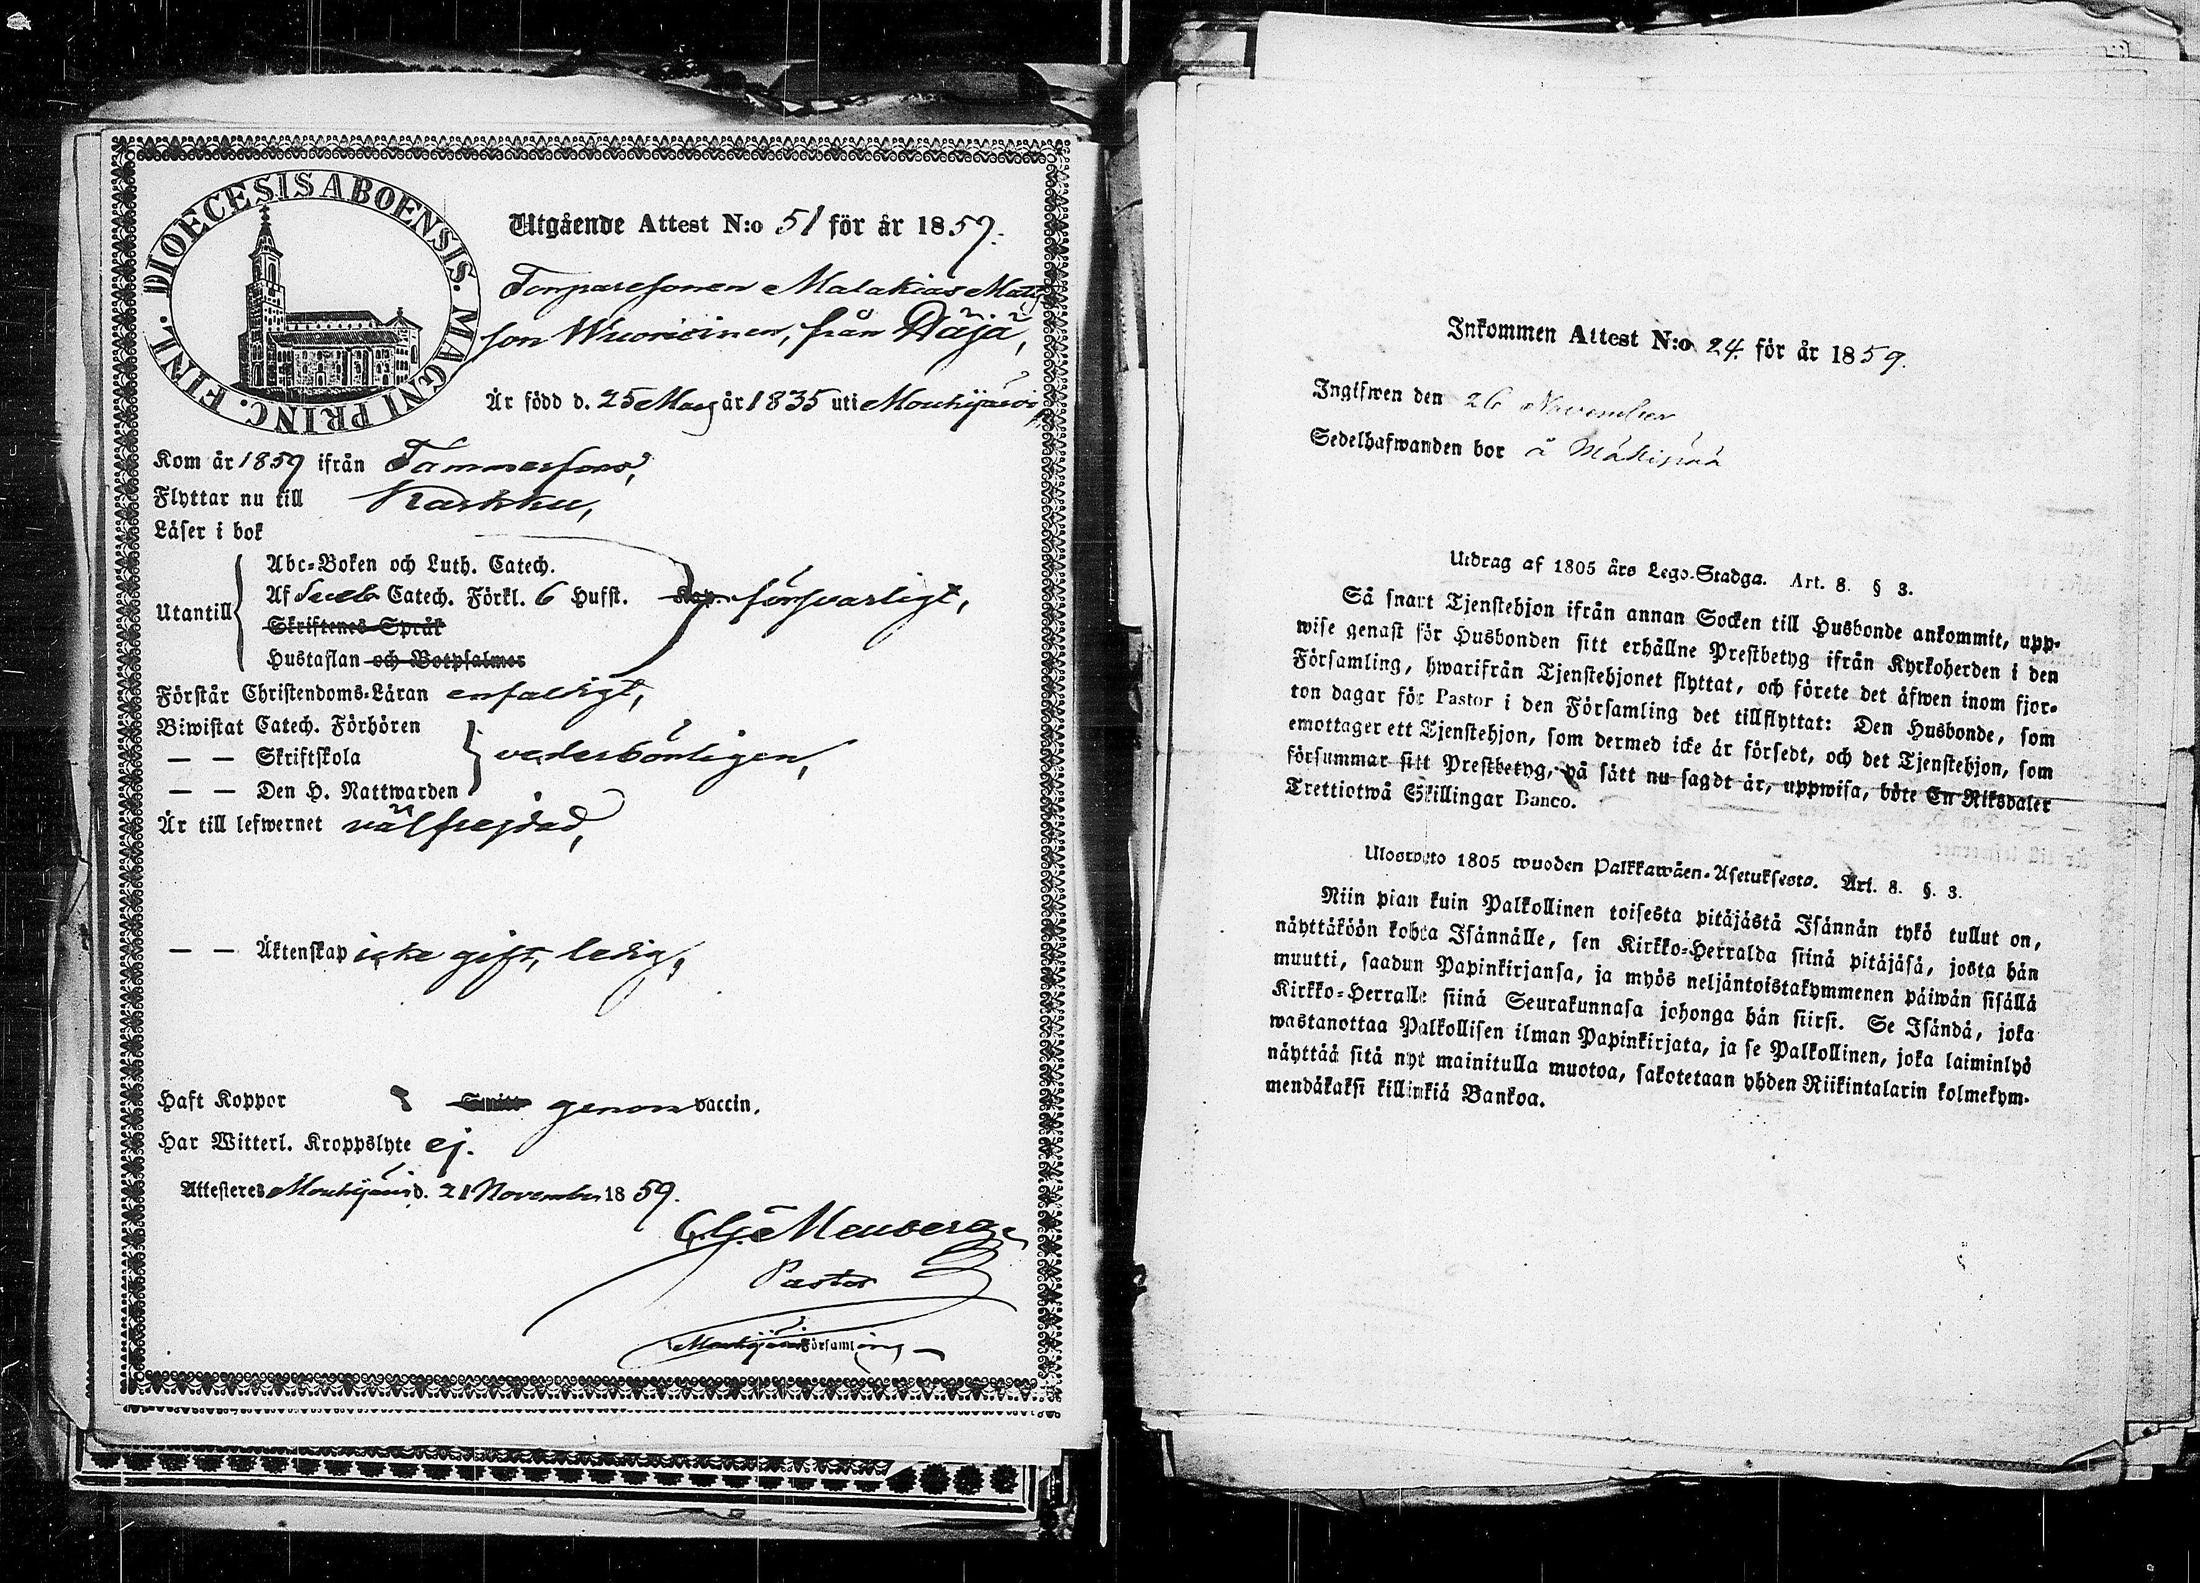 DIOECESIS ABOENSIS. MAGNI PRINC. FINL.
Utgående Attest N:o 51 för år 1859.
Torparesonen Malakias Matts
son Wuorinen, från Häjä,
Är född d. 25 Mars år 1835 uti Mouhijärvi
Kom år 1859 ifrån Tammerfors,
Flyttar nu till Karkku,
Läser i bok
Abc-Boken och Luth. Catech.
Utantill Af Sveb Catech. Förkl. 6 Hufst. Kap. försvarligt,
Skriftenes Språk
Hustaflan och Botpsalmer
Förstår Christendoms-Läran enfaldigt,
Biwistat Catech. Förhören
— — Skriftskola vederbörligen,
— — Den H. Nattwarden
Är till lefwernet välfrejdad,
— — Äktenskap icke gift, ledig,
Haft Koppor genom vaccin.
Har Witterl. Kroppslyte ej.
Attesteres Mouhijärvi d. 21 November 1859.
Pastor
Mouhijärvi Församling
Inkommen Attest N:o 24. för år 1859.
Ingifwen den 26 November
Sedelhafwanden bor å
Utdrag af 1805 års Lego-Stadga. Art. 8. § 3.
Så snart Tjenstehjon ifrån annan Socken till Husbonde ankommit, upp-
wise genast för Husbonden sitt erhållne Prestbetyg ifrån Kyrkoherden i den
Församling, hwarifrån Tjenstehjonet flyttat, och förete det äfwen inom fjor-
ton dagar för Pastor i den Församling det tillflyttat: Den Husbonde, som
emottager ett Tjenstehjon, som dermed icke är försedt, och det Tjenstehjon, som
försummar sitt Prestbetyg, på sätt nu sagdt är, uppwisa, böte En Riksdaler
Trettiotwå Skillingar Banco.
Ulosweto 1805 wuoden Palkkawäen-Asetuksesta. Art. 8. §. 3.
Niin pian kuin Palkollinen toisesta pitäjästä Isännän tykö tullut on,
näyttäköön kohta Isännälle, sen Kirkko-Herralda siinä pitäjäsä, josta hän
muutti, saadun Papinkirjansa, ja myös neljäntoistakymmenen päiwän sisällä
Kirkko-Herralle siinä Seurakunnasa johonga hän siirsi. Se Isändä, joka
wastanottaa Palkollisen ilman Papinkirjata, ja se Palkollinen, joka laiminlyö
näyttää sitä nyt mainitulla muotoa, sakotetaan yhden Riikintalarin kolmekym-
mendäkaksi killinkiä Bankoa.